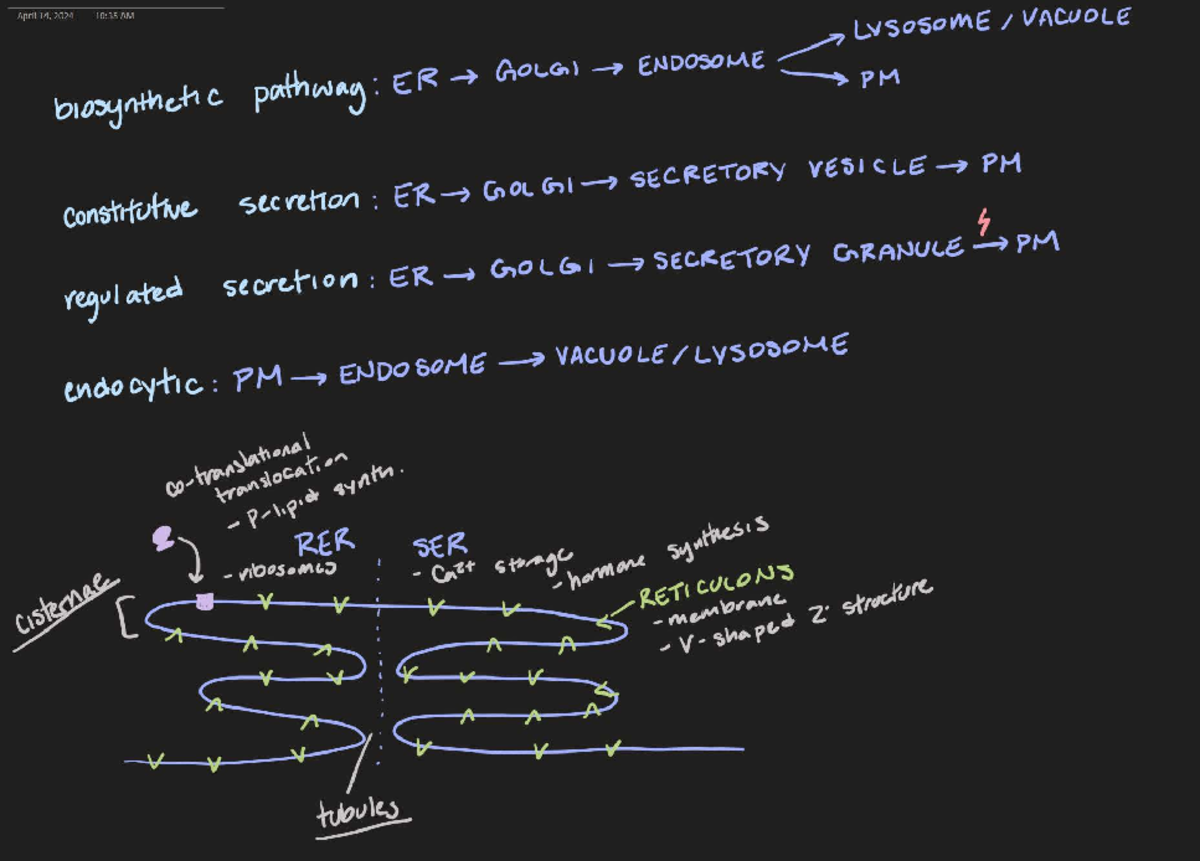 April 14, 2024 10:35 AM
biosynthetic pathway: ER → GOLGI → ENDOSOME → LYSOSOME / VACUOLE
→ PM
constitutive secretion: ER → GOLGI → SECRETORY VESICLE → PM
regulated secretion: ER → GOLGI → SECRETORY GRANULE → PM
endocytic: PM → ENDOSOME → VACUOLE / LYSOSOME
co-translational
translocation
- P-lipid synth.
RER
- ribosomes
SER
- Ca2+ storage
- hormone synthesis
RETICULONS
- membrane
- V-shaped 2° structure
cisternae
tubules